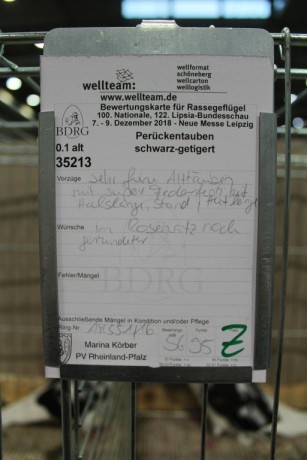 wellteam:
wellformat
schöneberg
wellcarton
welllogistik
www.wellteam.de
Bewertungskarte für Rassegeflügel
100. Nationale, 122. Lipsia-Bundesschau
7. - 9. Dezember 2018 - Neue Messe Leipzig
BDRG
Perückentauben
schwarz-getigert
0.1 alt
35213
Vorzüge
sehr feine Alttäubin
mit super
Halslänge, Stand,
Wünsche
noch
gerundeter
BDRG
Fehler/Mängel
Ausschließende Mängel in Kondition und/oder Pflege
Ring-Nr.
Marina Körber
PV Rheinland-Pfalz
95
Z